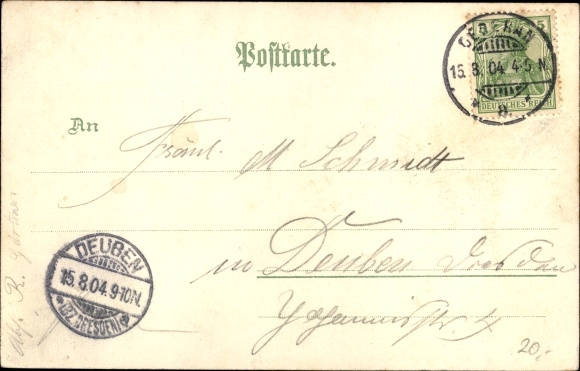 Postkarte.
5
15.8.04 4-5 N.
* a. *
DEUTSCHES REICH
An
Fräul. M Schmidt
in Deuben Dresden
DEUBEN
15.8.04.9-10N.
*(BZ.DRESDEN)*
Abs. R.
20.-